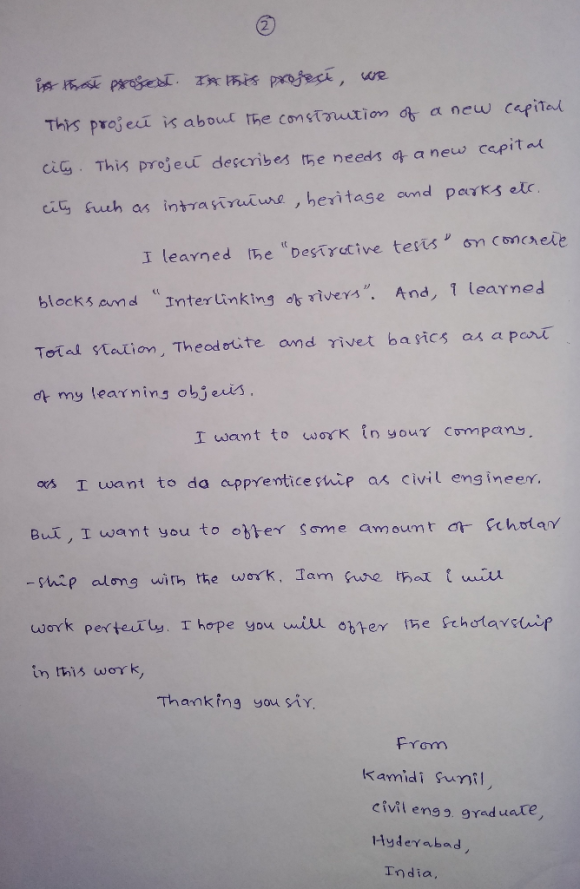 2
in that project. In this project, we
This project is about the construction of a new capital
city. This project describes the needs of a new capital
city such as infrastructure, heritage and parks etc.
I learned the "Destructive tests" on concrete
blocks and "Interlinking of rivers". And, I learned
Total station, Theodolite and rivet basics as a part
of my learning objects.
I want to work in your company.
as I want to do apprenticeship as civil engineer.
But, I want you to offer some amount of scholar
-ship along with the work. Iam sure that i will
work perfectly. I hope you will offer the scholarship
in this work,
Thanking you sir.
From
Kamidi Sunil,
civil engg. graduate,
Hyderabad,
India.